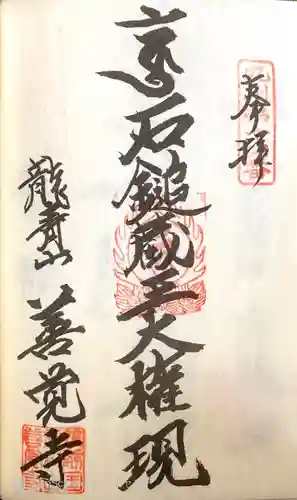 奉拝
石鎚蔵王大権現
龍青山
善覚寺